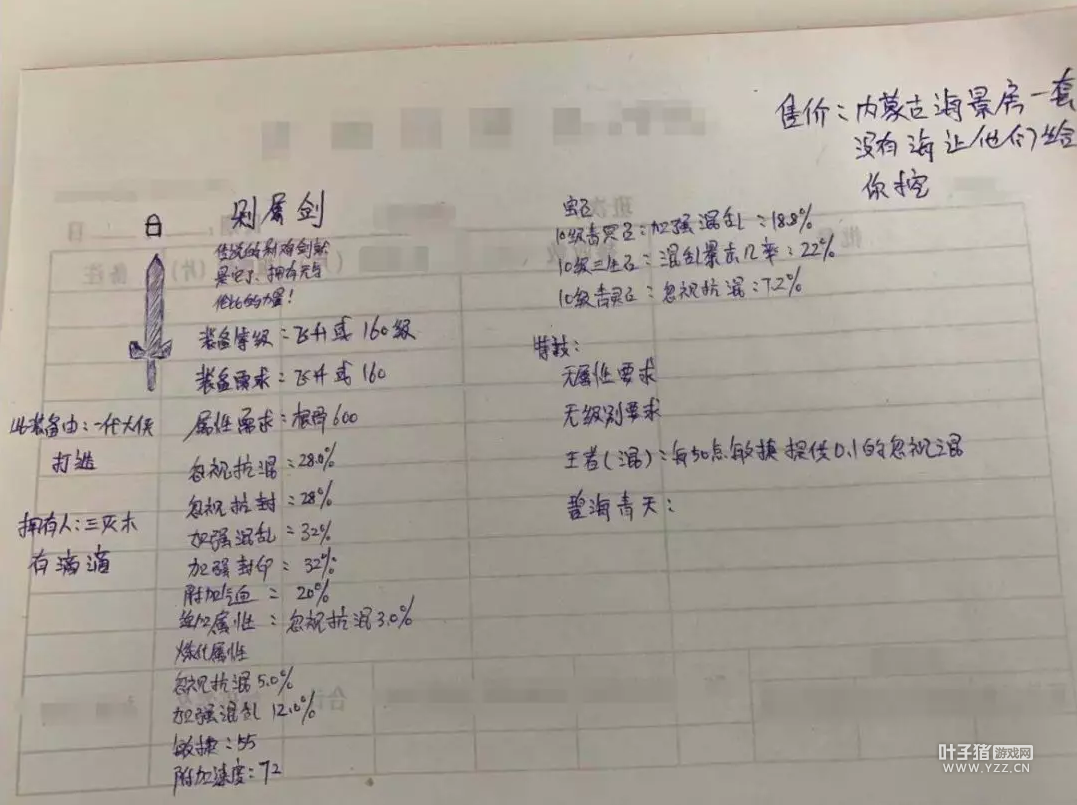 售价：内蒙古海景房一套
没有海让他们给
你挖
剔屠剑
传说的剔屠剑就
是它了、拥有无与
伦比的力量！
装备等级：飞升或160级
装备要求：飞升或160
属性需求：根骨600
忽视抗混：28.0%
忽视抗封：28%
加强混乱：32%
加强封印：32%
附加气血：20%
追加属性：忽视抗混3.0%
炼化属性
忽视抗混5.0%
加强混乱12.0%
敏捷：55
附加速度：72
此装备由：一代大侠
打造
拥有人：三灭木
有滴滴
宝石
10级青灵石：加强混乱：18.8%
10级三生石：混乱暴击几率：22%
10级青灵石：忽视抗混：7.2%
特技：
无属性要求
无级别要求
王者(混)：每50点敏捷提供0.1的忽视混
碧海青天：
班次
日
备注
合计
叶子猪游戏网
WWW.YZZ.CN